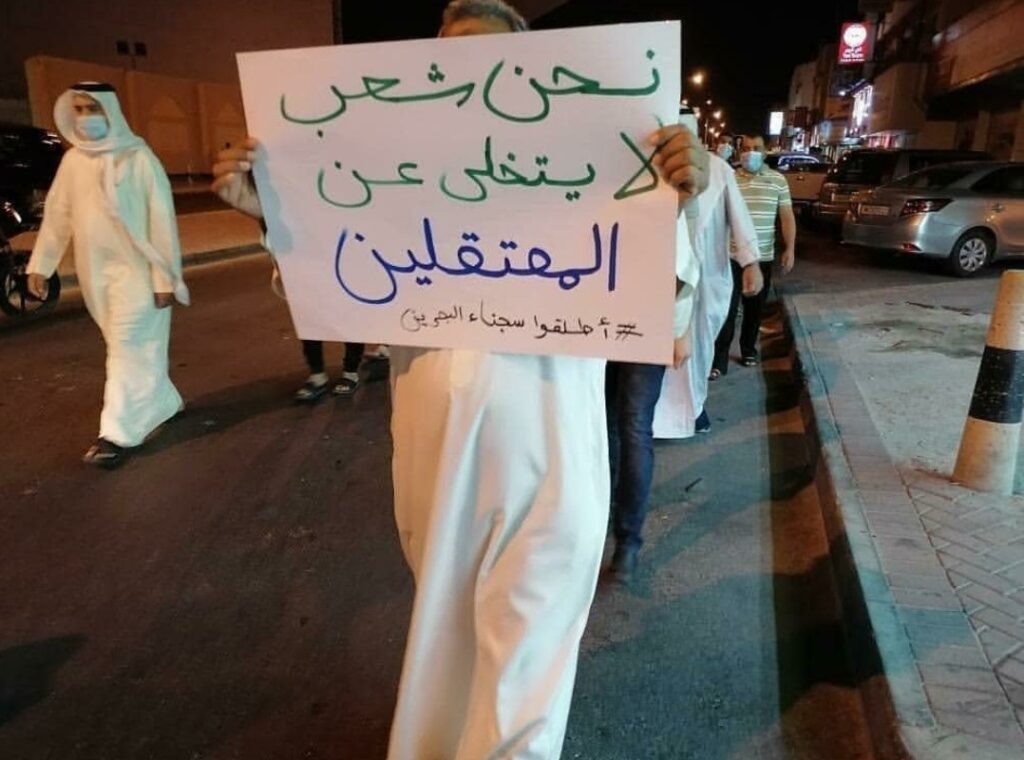 نحن شعب
لا يتخلى عن
المعتقلين
#أطلقوا سجناء البحرين